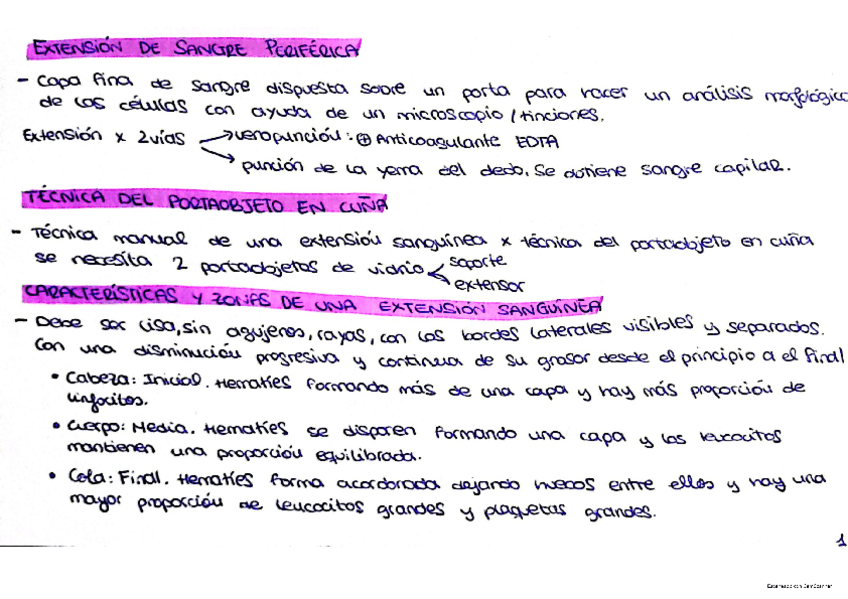 EXTENSIÓN DE SANGRE PERIFÉRICA
- Capa fina de sangre dispuesta sobre un porta para hacer un análisis morfológico
de las células con ayuda de un microscopio / tinciones.
Extensión x 2 vías → venopunción: ⊕ Anticoagulante EDTA
→ punción de la yema del dedo. Se obtiene sangre capilar.
TÉCNICA DEL PORTAOBJETO EN CUÑA
- Técnica manual de una extensión sanguínea x técnica del portaobjeto en cuña
se necesita 2 portaobjetos de vidrio soporte
extensor
CARACTERÍSTICAS Y ZONAS DE UNA EXTENSIÓN SANGUÍNEA
- Debe ser lisa, sin agujeros, rayas, con los bordes laterales visibles y separados.
Con una disminución progresiva y continua de su grosor desde el principio a el final
• Cabeza: Inicial. Hematíes formando más de una capa y hay más proporción de
linfocitos.
• Cuerpo: Media. Hematíes se disponen formando una capa y los leucocitos
mantienen una proporción equilibrada.
• Cola: Final. Hematíes forma acordonada dejando huecos entre ellos y hay una
mayor proporción de leucocitos grandes y plaquetas grandes.
1
Escaneado con CamScanner